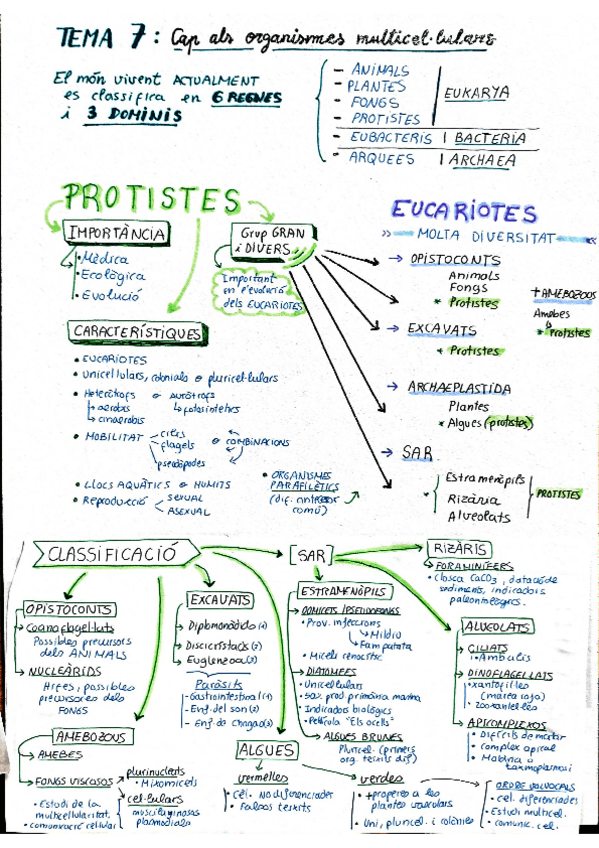 TEMA 7: Cap als organismes multicel·lulars
El món vivent ACTUALMENT
es classifica en 6 REGNES
i 3 DOMINIS
- ANIMALS
- PLANTES
- FONGS
- PROTISTES
EUKARYA
- EUBACTERIS | BACTERIA
- ARQUEES | ARCHAEA
PROTISTES
IMPORTÀNCIA
• Mèdica
• Ecològica
• Evolució
Grup GRAN
i DIVERS
Important
en l'evolució
dels EUCARIOTES
CARACTERÍSTIQUES
• EUCARIOTES
• Unicel·lulars, colonials o pluricel·lulars
• Heteròtrofs o autòtrofs
aerobis
fotosintètics
anaerobis
• MOBILITAT
cilis
flagels
pseudopodes
o COMBINACIONS
• LLOCS AQUÀTICS o HUMITS
• Reproducció
SEXUAL
ASEXUAL
• ORGANISMES
PARAFILÈTICS
(dif. antecesor
comú)
EUCARIOTES
MOLTA DIVERSITAT
OPISTOCONTS
Animals
Fongs
* Protistes
+ AMEBOZOUS
Amebes
* Protistes
EXCAVATS
* Protistes
ARCHAEPLASTIDA
Plantes
* Algues (protistes)
SAR
Estramenòpils
Rizària
Alveolats
PROTISTES
CLASSIFICACIÓ
[SAR]
RIZÀRIS
FORAMINÍFERS
• Closca CaCO3, datació de
sediments, indicadors
paleontològics.
OPISTOCONTS
Coanoflagel·lats
Possibles precursors
dels ANIMALS
NUCLEÀRIDS
Hifes, possibles
precursores dels
FONGS
EXCAVATS
Diplomonàdids (1)
Discicristats (2)
Euglenozoa (3)
Paràsits
- Gastrointestinal (1)
- Enf. del son (2)
- Enf. de Chagas (3)
ESTRAMENÒPILS
OOMICETS / PSEUDOFONGS
• Prov. infeccions
Mildiu
Fam patata
• Miceli cenocític
DIATOMEES
• Unicel·lulars
• 50% prod. primària marina
• Indicadors biològics
• Pel·lícula "Els ocells"
ALGUES BRUNES
Pluricel. (primers
org. teixits dif)
ALVEOLATS
CILIATS
• Ambalis
DINOFLAGEL·LATS
• xantofil·les
(marea roja)
• zooxantel·les
APICOMPLEXOS
• Difícils de matar
• Complex apical
• Malària o
toxoplasmosi
AMEBOZOUS
AMEBES
FONGS VISCOSOS
plurinucleats
• Mixomicets
cel·lulars
mucilaginosos
plasmodials
• Estudi de la
multicellularitat
• comunicació cellular
ALGUES
vermelles
• Cèl. No diferenciades
• Falsos teixits
verdes
• + properes a les
plantes vasculars
• Uni, pluricel. i colònies
ORDRE VOLVOCALS
• cel. diferenciades
• Estudi multicel.
• comunic. cel.